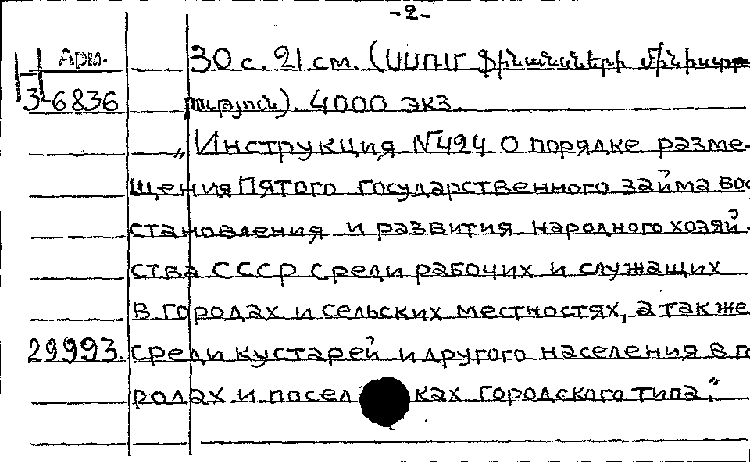 -2-
Арм. 30 с. 21 см. (ՍՍՌՄ ֆինանսների մինիստր
3-6836 ություն). 4000 экз.
„Инструкция №424 О порядке разме-
щения Пятого государственного займа вос
становления и развития народного хозяй-
ства СССР среди рабочих и служащих
в городах и сельских местностях, а также
29993. среди кустарей и другого населения в го
родах и поселках городского типа."